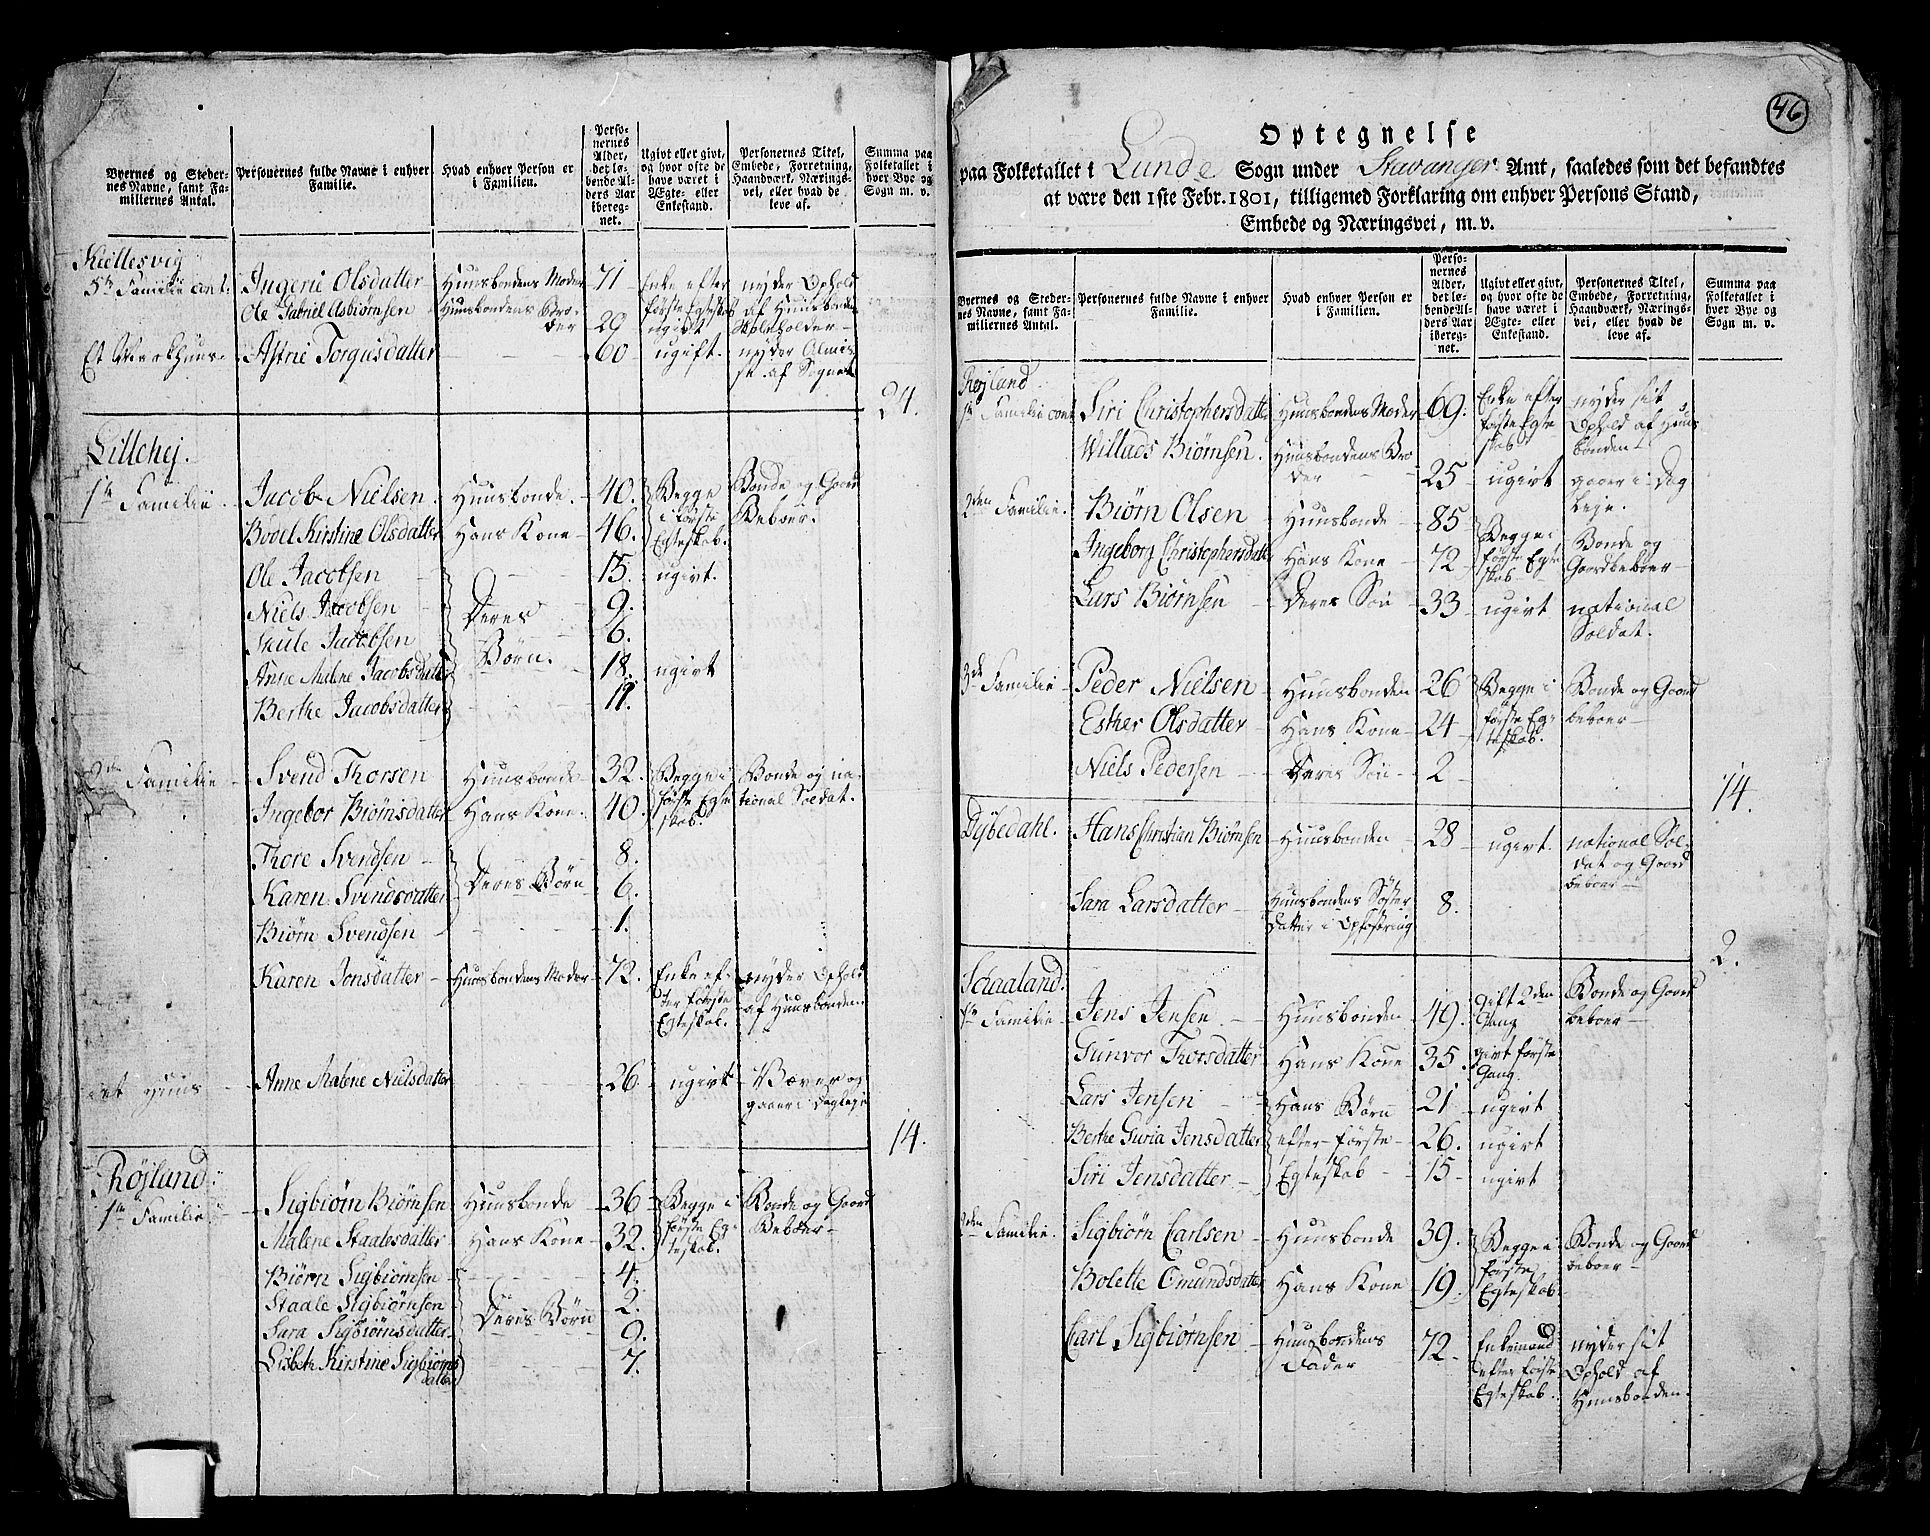 Byernes og Steder-
nes Navne, samt Fa-
milliernes Antal.
Personernes fulde Navne i enhver
Familie.
Hvad enhver Person er
i Familien.
Perso-
nernes
Alder,
det lø-
bende Al-
ders Aar
ibereg-
net.
Ugivt eller givt,
og hvor ofte de
have været i
Ægte- eller
Enkestand.
Personernes Titel,
Embede, Forretning,
Haandværk, Nærings-
vei, eller hvad de
leve af.
Summa paa
Folketallet i
hver Bye og
Sogn m. v.
Kiellesvig
5te Familie cont:
Ingerie Olsdatter Huusbondens Moder 71 Enke efter første Egteskab nyder Ophold af Huusbonden
Ole Gabriel Asbiørnsen Huusbondens Broder 29 ugivt
Et Værkhuus Astrie Torgusdatter 60 ugift. nyder Almisse af Sognet
24.
Lillehej.
1te Familie. Jacob Nielsen Huusbonde 40. Begge i første Egteskab. Bonde og Gaard Beboer.
Bodel Kirstine Olsdatter Hans Kone 46.
Ole Jacobsen 15. ugivt.
Niels Jacobsen Deres Børn. 9.
Jacobsen 6.
Anne Malene Jacobsdatter 18. ugivt
Berthe Jacobsdatter 11.
2den Familie Svend Thorsen Huusbonde 32. Begge i første Egteskab. Bonde og national Soldat.
Ingebor Biørnsdatter Hans Kone. 40.
Thore Svendsen 8.
Karen Svendsdatter Deres Børn 6.
Biørn Svendsen 1.
Karen Jonsdatter Huusbondens Moder 72. Enke efter første Egteskab. nyder Ophold af Huusbonden
et Huus Anne Malene Nielsdatter 26 ugivt Væver og gaaer i Dagleje
14.
Røjland:
1te Familie Sigbiørn Biørnsen Huusbonde 36 Begge i første Egteskab. Bonde og Gaard Beboer
Malene Staalesdatter Hans Kone 32.
Biørn Sigbiørnsen 4.
Staale Sigbiørnsen Deres Børn 2.
Sara Sigbiørnsdatter 9.
Lisbeth Kirstine Sigbiørnsdatter 7.
46
Optegnelse
paa Folketallet i Lunde Sogn under Stavanger Amt, saaledes som det befandtes
at være den 1ste Febr. 1801, tilligemed Forklaring om enhver Persons Stand,
Embede og Næringsvei, m. v.
Byernes og Steder-
nes Navne, samt Fa-
miliernes Antal.
Personernes fulde Navne i enhver
Familie.
Hvad enhver Person er
i Familien.
Perso-
nernes
Alder,
det lø-
bende Al-
ders Aar
ibereg-
net.
Ugivt eller givt,
og hvor ofte de
have været i
Ægte- eller
Enkestand.
Personernes Titel,
Embede, Forretning,
Haandværk, Nærings-
vei, eller hvad de
leve af.
Summa paa
Folketallet i
hver Bye og
Sogn m. v.
Røjland
1te Familie cont Siri Christophersdatter Huusbondens Moder 69. Enke efter første Egteskab nyder sit Ophold af Huusbonden
Willads Biørnsen. Huusbondens Broder 25 ugivt gaaer i Dagleje.
2den Familie. Biørn Olsen Huusbonde 85 Begge i første Egteskab Bonde og Gaardbeboer
Ingeborg Christophersdatter Hans Kone 72
Lars Biørnsen Deres Søn 33 ugivt national Soldat.
3de Familie Peder Nielsen Huusbonden 26 Begge i første Egteskab. Bonde og Gaard beboer
Esther Olsdatter Hans Kone 24
Niels Pedersen Deres Søn 2
14.
Dybedahl. Hans Christian Biørnsen Huusbonden 28 ugivt. national Soldat og Gaard beboer
Sara Larsdatter Huusbondens Søster Datter i Opfostring 8.
2.
Schaaland:
1te Familie Jens Jensen Huusbonden 49. Gift 2den Gang Bonde og Gaard beboer
Gunvor Thorsdatter Hans Kone 35. givt første Gang.
Lars Jensen Hans Børn 21 ugivt
Berthe Guria Jensdatter efter første 26. ugivt
Siri Jensdatter Egteskab 15 ugivt
2den Familie. Sigbiørn Carlsen Huusbonde 39. Begge i første Egteskab. Bonde og Gaard beboer
Bolette Omundsdatter Hans Kone 19.
Carl Sigbiørnsen Huusbondens Fader 72. Enkemand efter første Egteskab. nyder sit Ophold af Huusbonden.